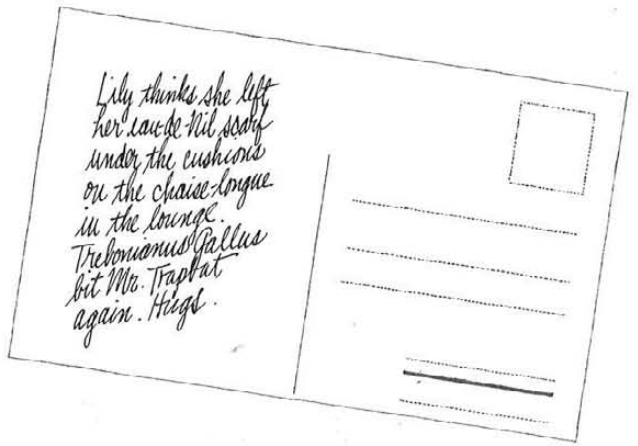 Lily thinks she left
her eau-de-Nil scarf
under the cushions
on the chaise-longue
in the lounge.
Trebonianus Gallus
bit Mr. Trapbat
again. Hugs.